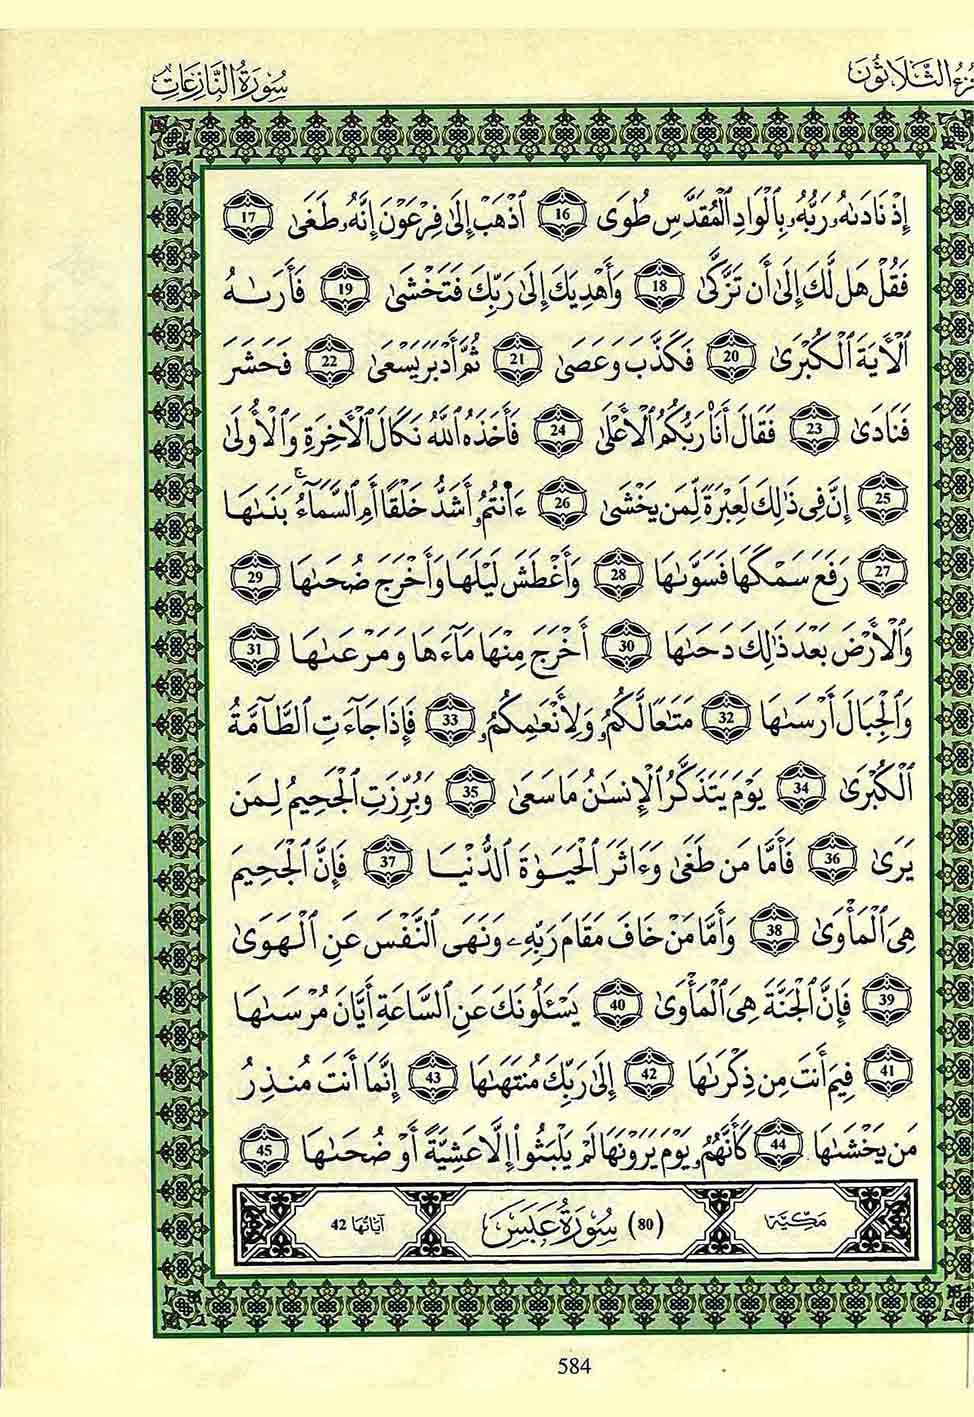 سُورَةُ النَّازِعَاتِ
الثَّلَاثُونَ
إِذْ نَادَىٰهُ رَبُّهُۥ بِٱلْوَادِ ٱلْمُقَدَّسِ طُوَى 16 ٱذْهَبْ إِلَىٰ فِرْعَوْنَ إِنَّهُۥ طَغَىٰ 17
فَقُلْ هَل لَّكَ إِلَىٰ أَن تَزَّكَّىٰ 18 وَأَهْدِيَكَ إِلَىٰ رَبِّكَ فَتَخْشَىٰ 19 فَأَرَىٰهُ
ٱلْأَيَةَ ٱلْكُبْرَىٰ 20 فَكَذَّبَ وَعَصَىٰ 21 ثُمَّ أَدْبَرَ يَسْعَىٰ 22 فَحَشَرَ
فَنَادَىٰ 23 فَقَالَ أَنَا۠ رَبُّكُمُ ٱلْأَعْلَىٰ 24 فَأَخَذَهُ ٱللَّهُ نَكَالَ ٱلْأَخِرَةِ وَٱلْأُولَىٰ
25 إِنَّ فِى ذَٰلِكَ لَعِبْرَةً لِّمَن يَخْشَىٰ 26 ءَا۬نتُمُۥ أَشَدُّ خَلْقًا أَمِ ٱلسَّمَآءُ ۚ بَنَىٰهَا
27 رَفَعَ سَمْكَهَا فَسَوَّىٰهَا 28 وَأَغْطَشَ لَيْلَهَا وَأَخْرَجَ ضُحَىٰهَا 29
وَٱلْأَرْضَ بَعْدَ ذَٰلِكَ دَحَىٰهَا 30 أَخْرَجَ مِنْهَا مَآءَهَا وَمَرْعَىٰهَا 31
وَٱلْجِبَالَ أَرْسَىٰهَا 32 مَتَٰعًا لَّكُمُۥ وَلِأَنْعَٰمِكُمُۥ 33 فَإِذَا جَآءَتِ ٱلطَّآمَّةُ
ٱلْكُبْرَىٰ 34 يَوْمَ يَتَذَكَّرُ ٱلْإِنسَٰنُ مَا سَعَىٰ 35 وَبُرِّزَتِ ٱلْجَحِيمُ لِمَن
يَرَىٰ 36 فَأَمَّا مَن طَغَىٰ وَءَاثَرَ ٱلْحَيَوٰةَ ٱلدُّنْيَا 37 فَإِنَّ ٱلْجَحِيمَ
هِىَ ٱلْمَأْوَىٰ 38 وَأَمَّا مَنْ خَافَ مَقَامَ رَبِّهِۦ وَنَهَى ٱلنَّفْسَ عَنِ ٱلْهَوَىٰ
39 فَإِنَّ ٱلْجَنَّةَ هِىَ ٱلْمَأْوَىٰ 40 يَسْـَٔلُونَكَ عَنِ ٱلسَّاعَةِ أَيَّانَ مُرْسَىٰهَا
41 فِيمَ أَنتَ مِن ذِكْرَىٰهَا 42 إِلَىٰ رَبِّكَ مُنتَهَىٰهَا 43 إِنَّمَا أَنتَ مُنذِرُ
مَن يَخْشَىٰهَا 44 كَأَنَّهُمُۥ يَوْمَ يَرَوْنَهَا لَمْ يَلْبَثُوٓا۟ إِلَّا عَشِيَّةً أَوْ ضُحَىٰهَا 45
مَكِّيَّة (80) سُورَةُ عَبَسَ آيَاتُهَا 42
584